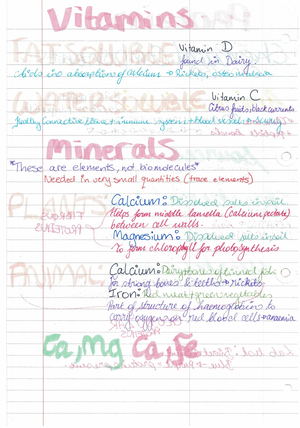 Vitamins
FAT SOLUBLE
Vitamin D
found in Dairy.
absorption of calcium → Rickets, osteomalacia
WATER SOLUBLE
Vitamin C
Citrus fruits, blackcurrants
Healthy Connective tissue + immune system + blood vessel
Minerals
*These are elements, not biomolecules*
Needed in very small quantities (trace elements)
PLANTS
Calcium: Dissolved salts in soil.
Helps form middle lamella (calcium pectate)
between cell walls.
Magnesium: Dissolved salts in soil
To form chlorophyll for photosynthesis
ANIMALS
Calcium: Dairy, bones of tinned fish
for strong bones & teeth → rickets
Iron: Red meat + green vegetables
Part of structure of haemoglobin to
carry oxygen on red blood cells → anaemia
Ca, Mg Ca, Fe